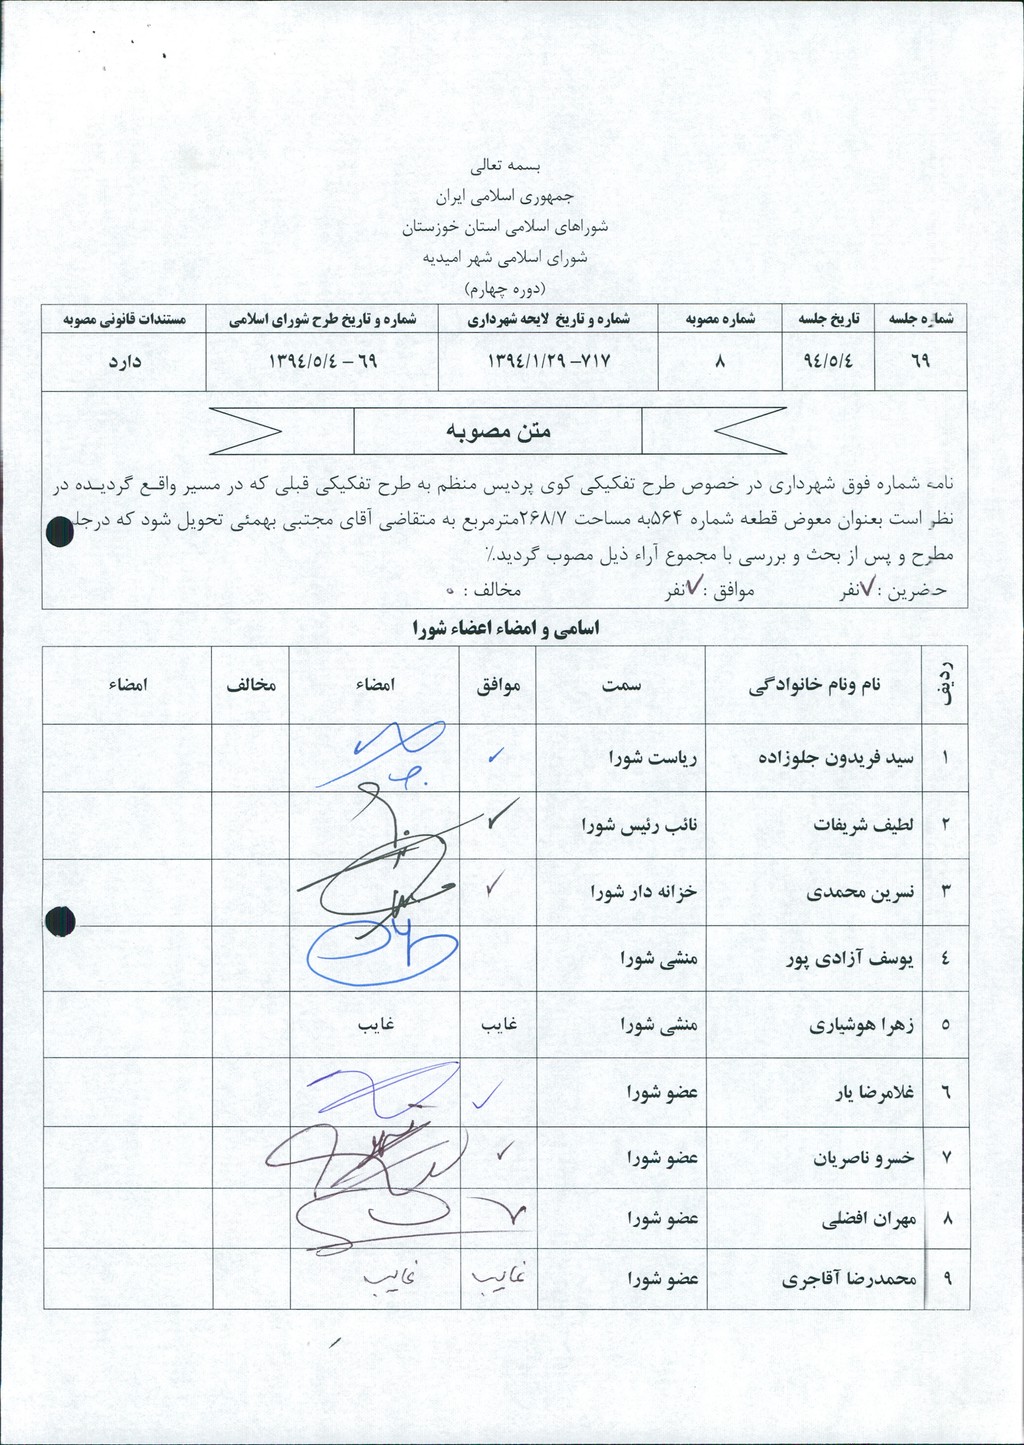 بسمه تعالی
جمهوری اسلامی ایران
شوراهای اسلامی استان خوزستان
شورای اسلامی شهر امیدیه
(دوره چهارم)
شماره جلسه تاریخ جلسه شماره مصوبه شماره و تاریخ لایحه شهرداری شماره و تاریخ طرح شورای اسلامی مستندات قانونی مصوبه
۶۹ ۹۴/۵/۴ ۸ ۷۱۷– ۱۳۹۴/۱/۲۹ ۶۹ – ۱۳۹۴/۵/۴ دارد
متن مصوبه
نامه شماره فوق شهرداری در خصوص طرح تفکیکی کوی پردیس منظم به طرح تفکیکی قبلی که در مسیر واقع گردیده در
نظر است بعنوان معوض قطعه شماره ۵۶۴به مساحت ۲۶۸/۷مترمربع به متقاضی آقای مجتبی بهمئی تحویل شود که درجل
مطرح و پس از بحث و بررسی با مجموع آراء ذیل مصوب گردید./
حضرین : ۷نفر موافق : ۷نفر مخالف : ۰
اسامی و امضاء اعضاء شورا
ردیف نام ونام خانوادگی سمت موافق امضاء مخالف امضاء
۱ سید فریدون جلوزاده ریاست شورا
۲ لطیف شریفات نائب رئیس شورا
۳ نسرین محمدی خزانه دار شورا
۴ یوسف آزادی پور منشی شورا
۵ زهرا هوشیاری منشی شورا غایب غایب
۶ غلامرضا یار عضو شورا
۷ خسرو ناصریان عضو شورا
۸ مهران افضلی عضو شورا
۹ محمدرضا آقاجری عضو شورا غایب غایب